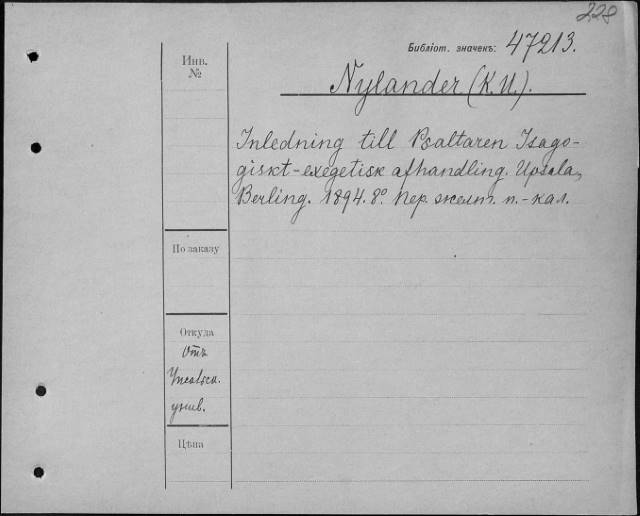 228
Библіот. значекъ: 47213.
Инв.
№
Nylander (K. U.).
Inledning till Psaltaren Isago-
giskt-exegetisk afhandling. Upsala,
Berling. 1894. 8º. Пер. желт. п.-кал.
По заказу
Откуда
Отъ
Упсальск.
унив.
Цѣна